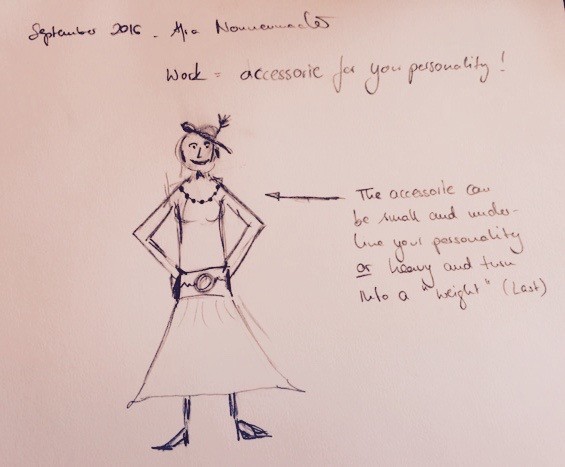 September 2016 - Mia Nonnenmacher
Work = accessorie for your personality!
The accessorie can
be small and under-
line your personality
or heavy and turn
into a "weight" (Last)